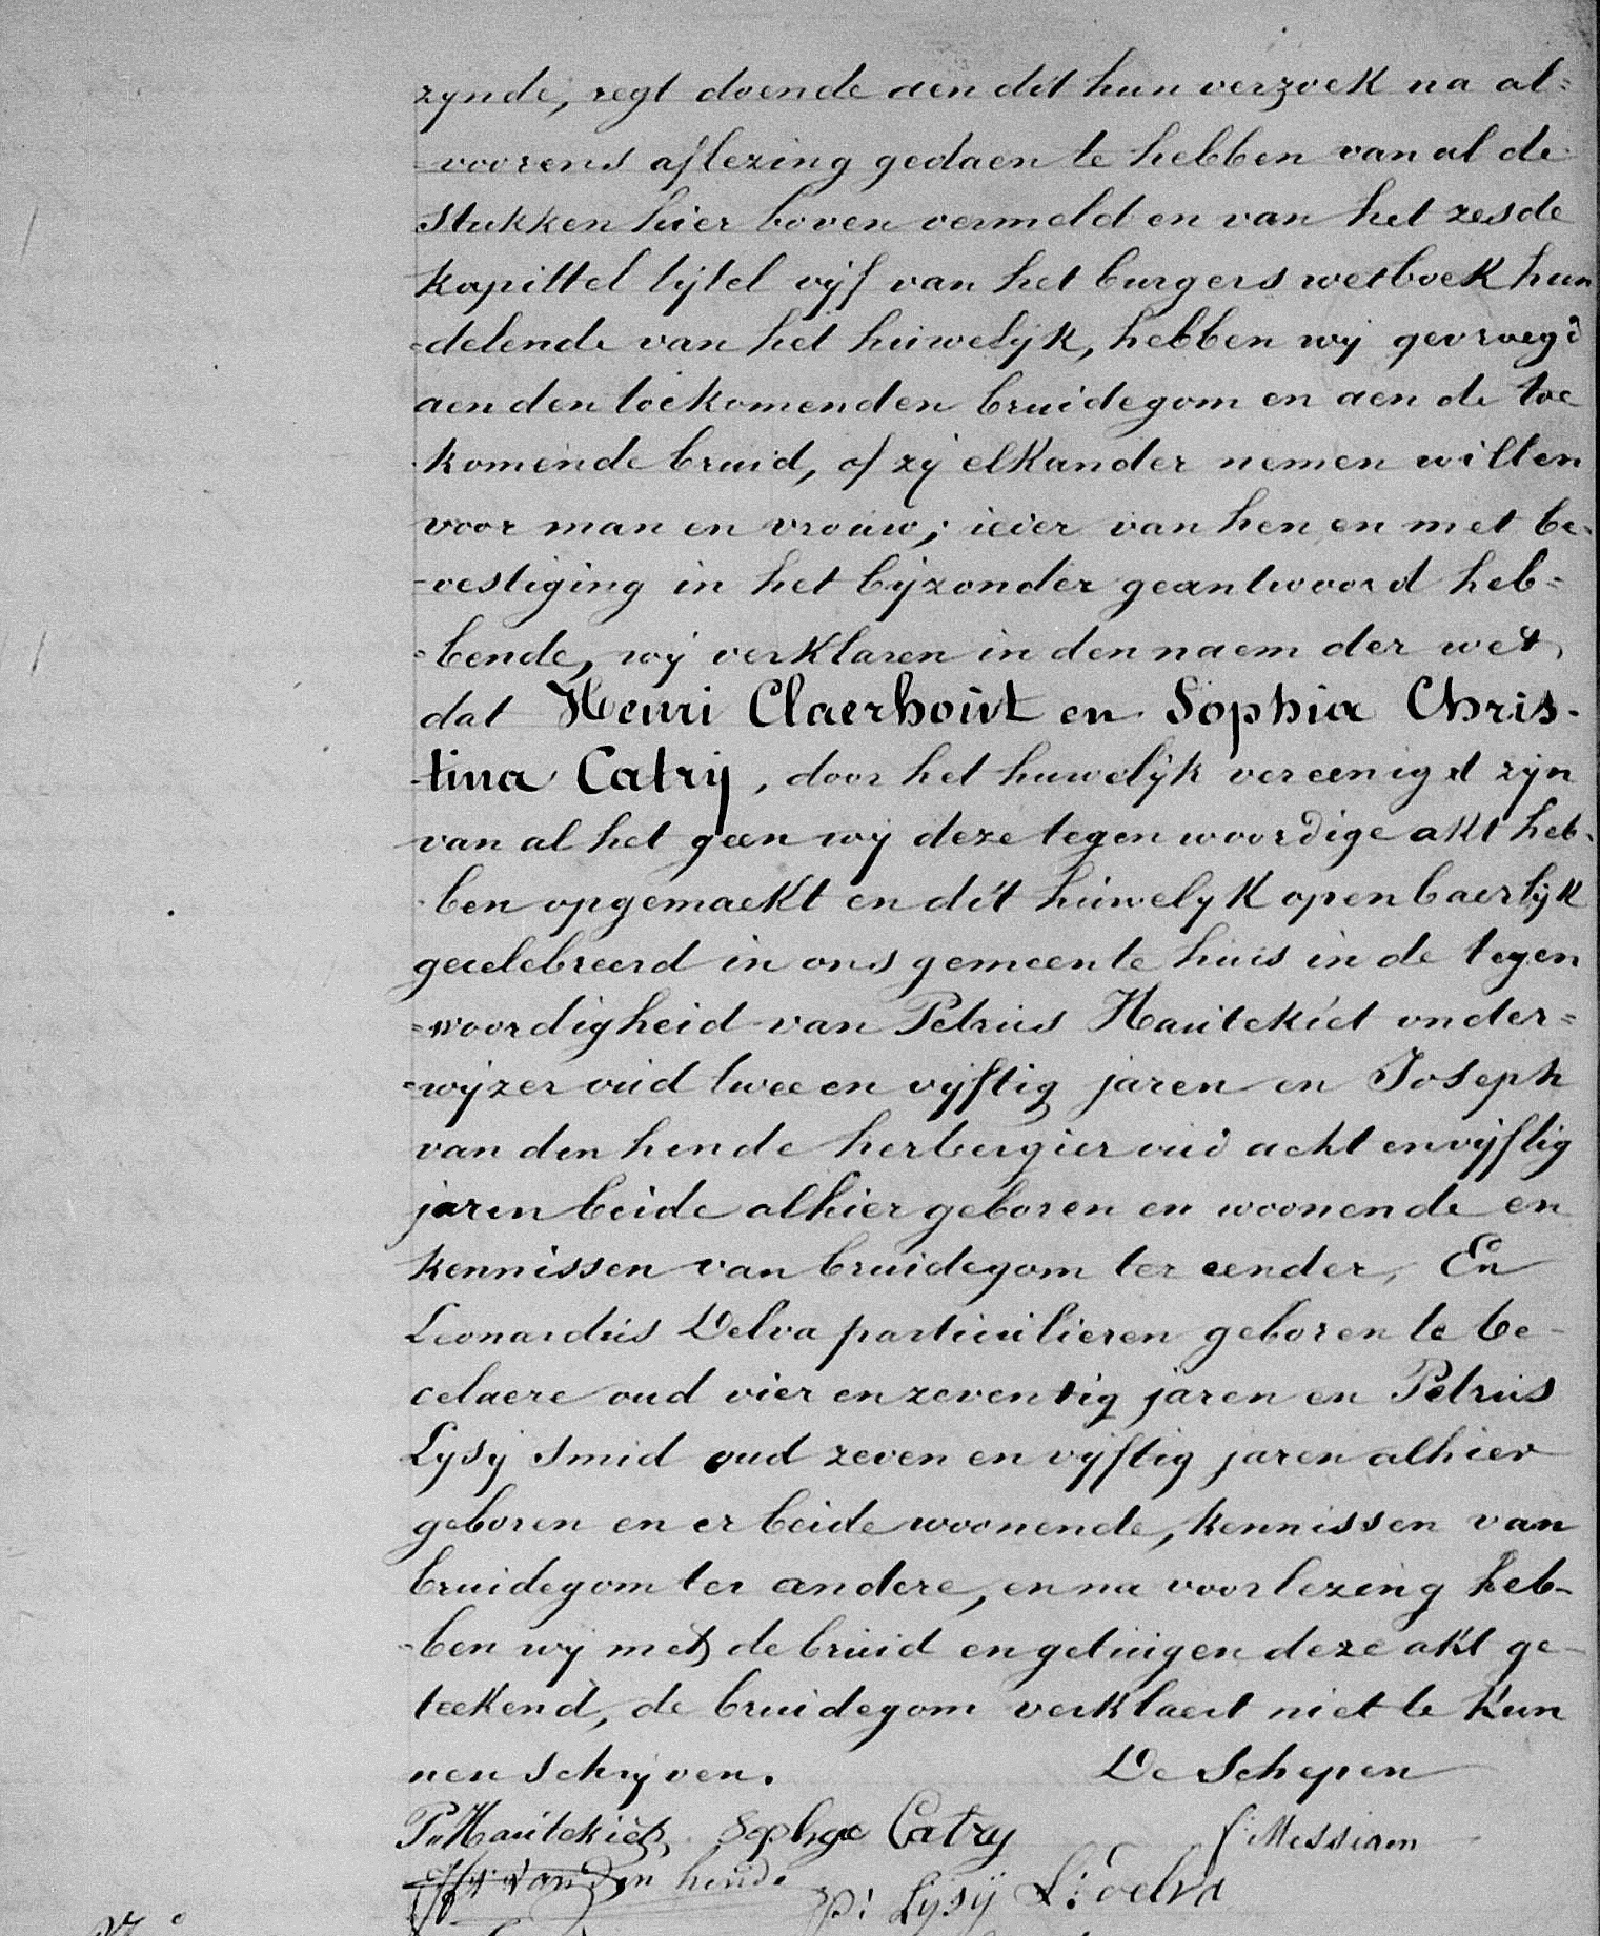 zynde, regt doende aen dit hun verzoek na al=
=voorens aflezing gedaen te hebben van al de
stukken hier boven vermeld en van het zesde
kapittel tytel vyf van het burgers wetboek hun
=delende van het huwelyk, hebben wy gevraegd
aen den toekomenden bruidegom en aen de toe
komende bruid, of zy elkander nemen willen
voor man en vrouw; ieder van hen en met be-
-vestiging in het byzonder geantwoord heb=
=bende, wy verklaren in den naem der wet,
dat Henri Claerhout en Sophia Chris-
-tina Catry, door het huwelyk vereenigd zyn
van al het geen wy deze tegenwoordige akt heb-
-ben opgemaekt en dit huwelyk openbaerlyk
gecelebreerd in ons gemeente huis in de tegen
=woordigheid van Petrus Hautekiet onder=
=wyzer oud twee en vyftig jaren en Joseph
van den hende herbergier oud acht en vyftig
jaren beide alhier geboren en woonende en
kennissen van bruidegom ter eender, En
Leonardus Delva particulieren geboren te be-
celaere oud vier en zeventig jaren en Petrus
Lysy smid oud zeven en vyftig jaren alhier
geboren en er beide woonende, kennissen van
bruidegom ter andere, en na voorlezing heb-
-ben wy met de bruid en getuigen deze akt ge-
teekend, de bruidegom verklaert niet te kun
nen schryven. De Schepen
P. Hautekiet Sophye Catry Messiaen
van den hende pi Lysÿ L: Delva